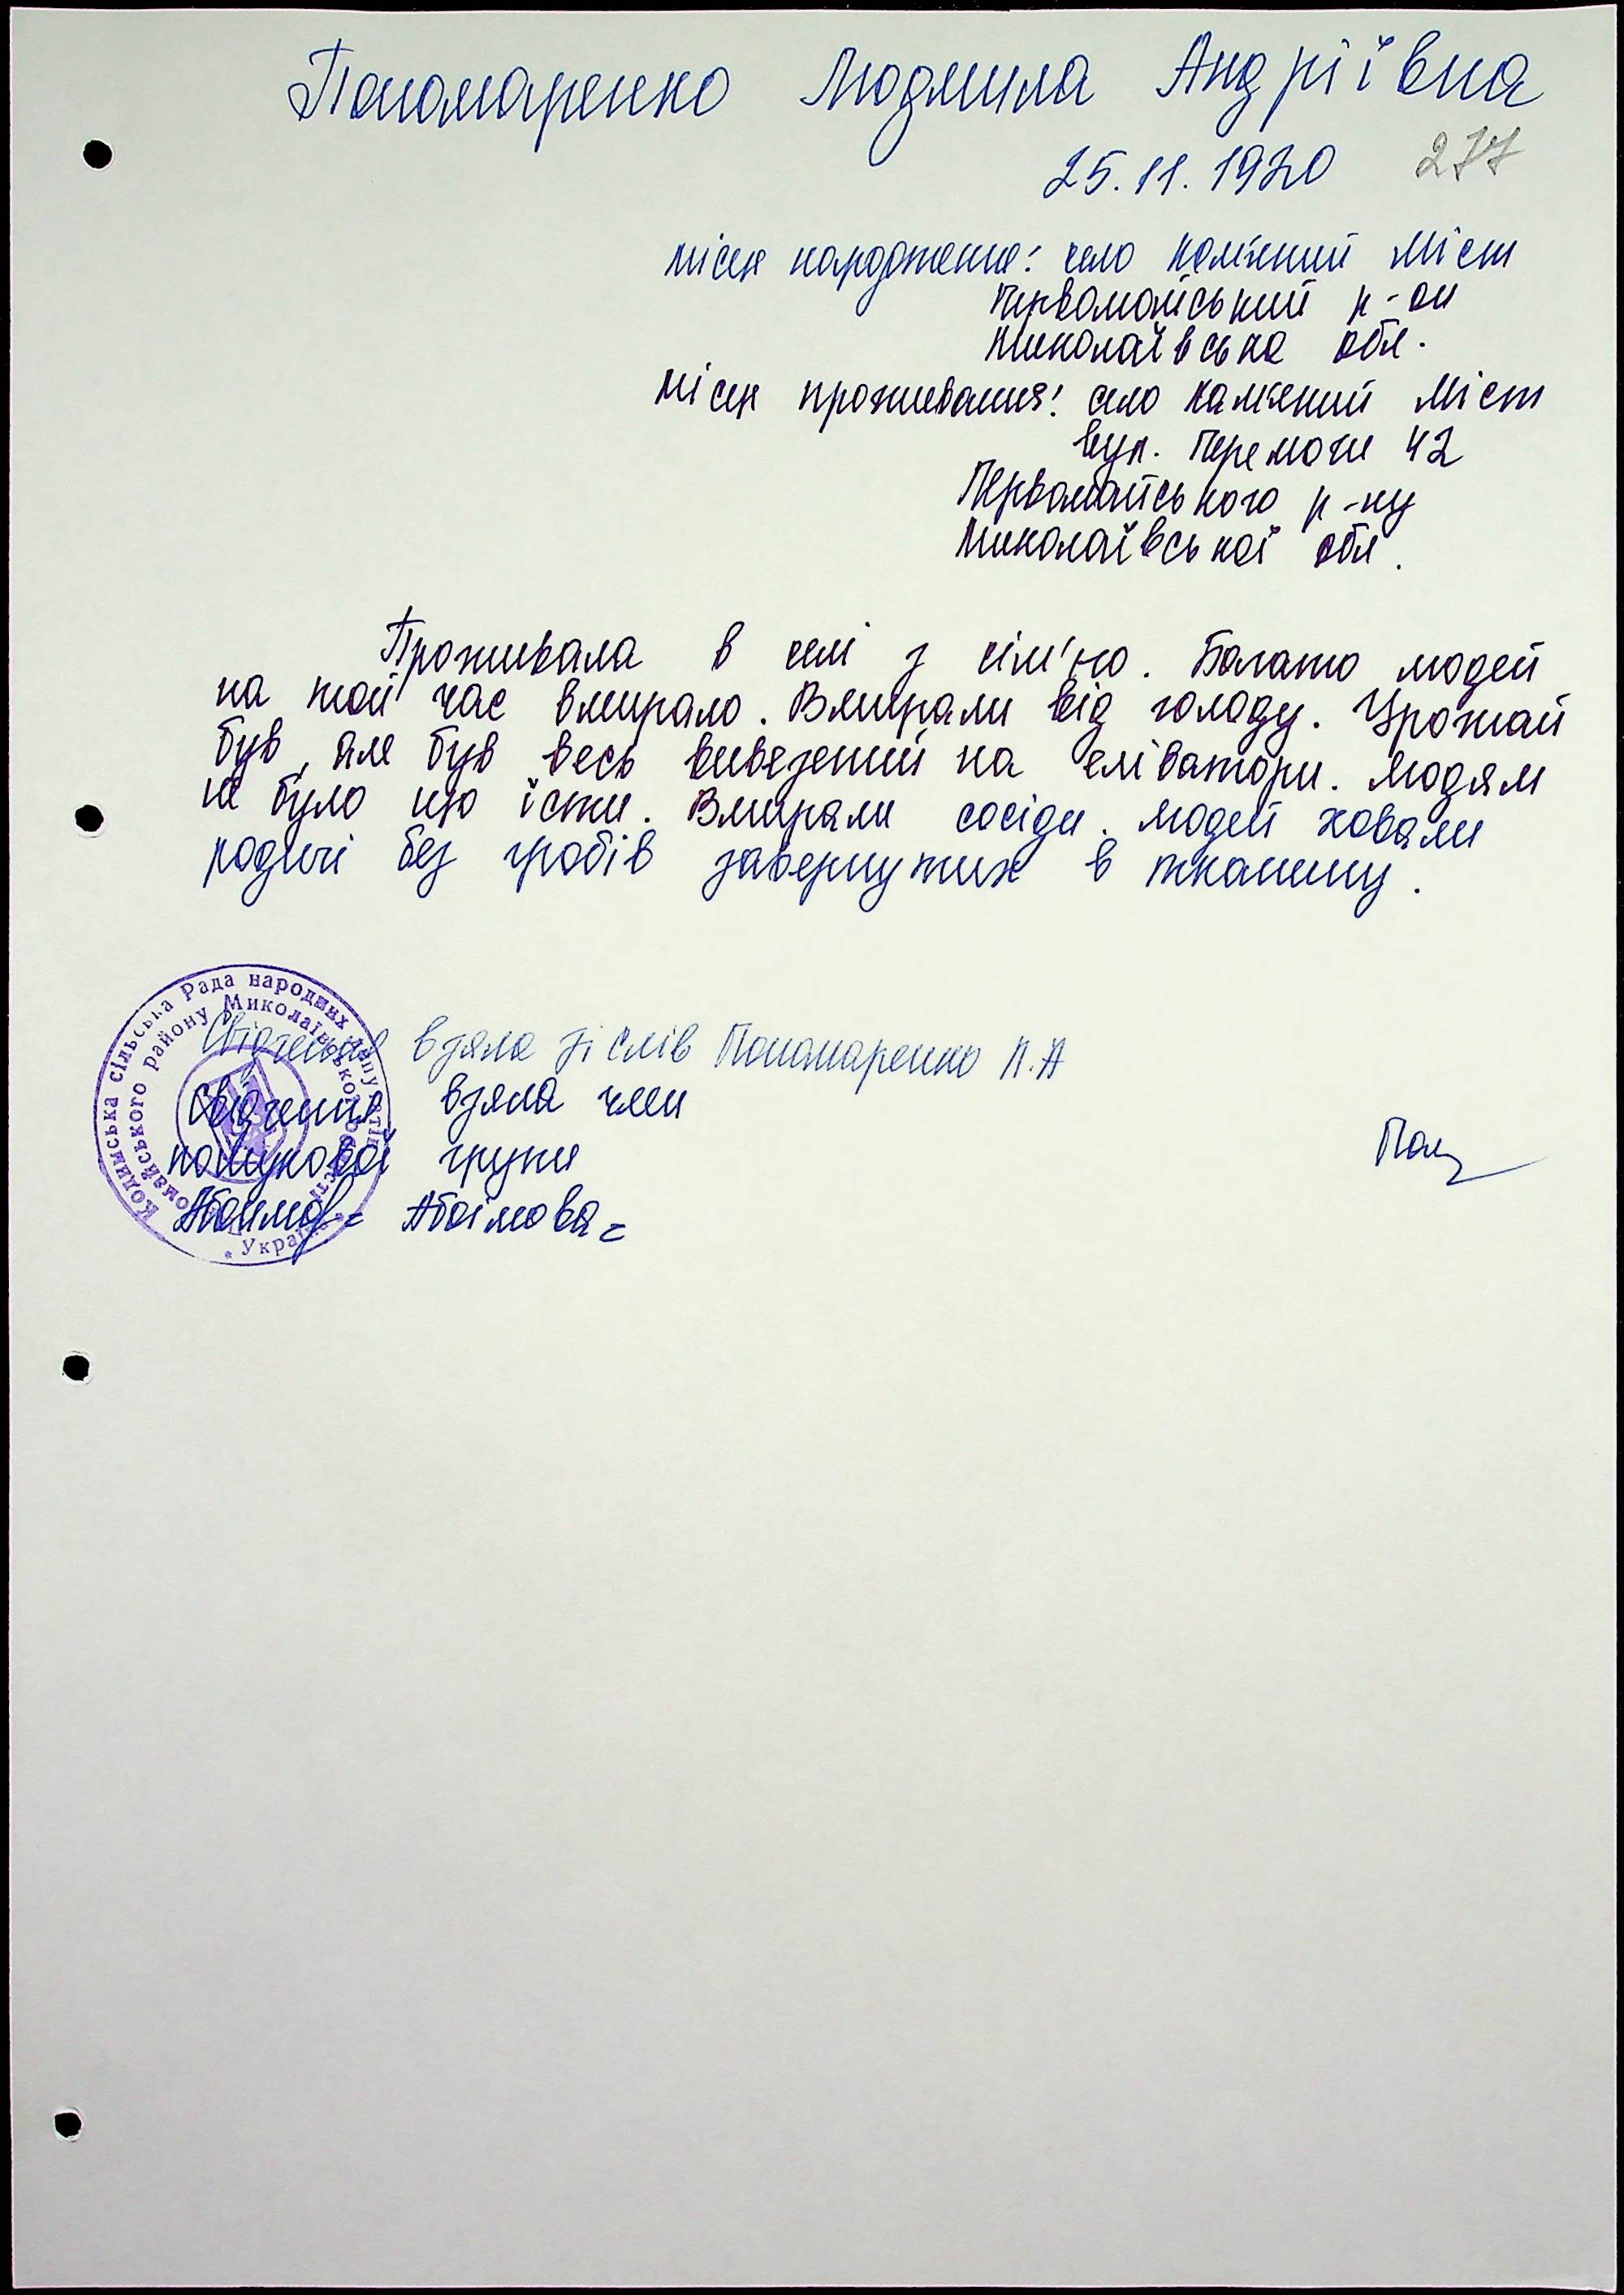 Пономаренко Людмила Андріївна
25.11.1920 277
місце народження: село Кам'яний Міст
Первомайський р-он
Миколаївська обл.
місце проживання: село Кам'яний Міст
вул. Перемоги 42
Первомайського р-ну
Миколаївської обл.
Проживала в селі з сім'ю. Багато людей
на той час вмирало. Вмирали від голоду. Урожай
був, але був весь вивезений на еліватори. Людям
не було що їсти. Вмирали сосіди. Людей ховали
родичі без гробів завернутих в тканину.
Свідчення взяла зі слів Пономаренко Л.А
Свідчення взяла член
пошукової групи
Абоімова
Кодимська сільська Рада народних депутатів
Первомайського району Миколаївської області
* Україна *
Пон